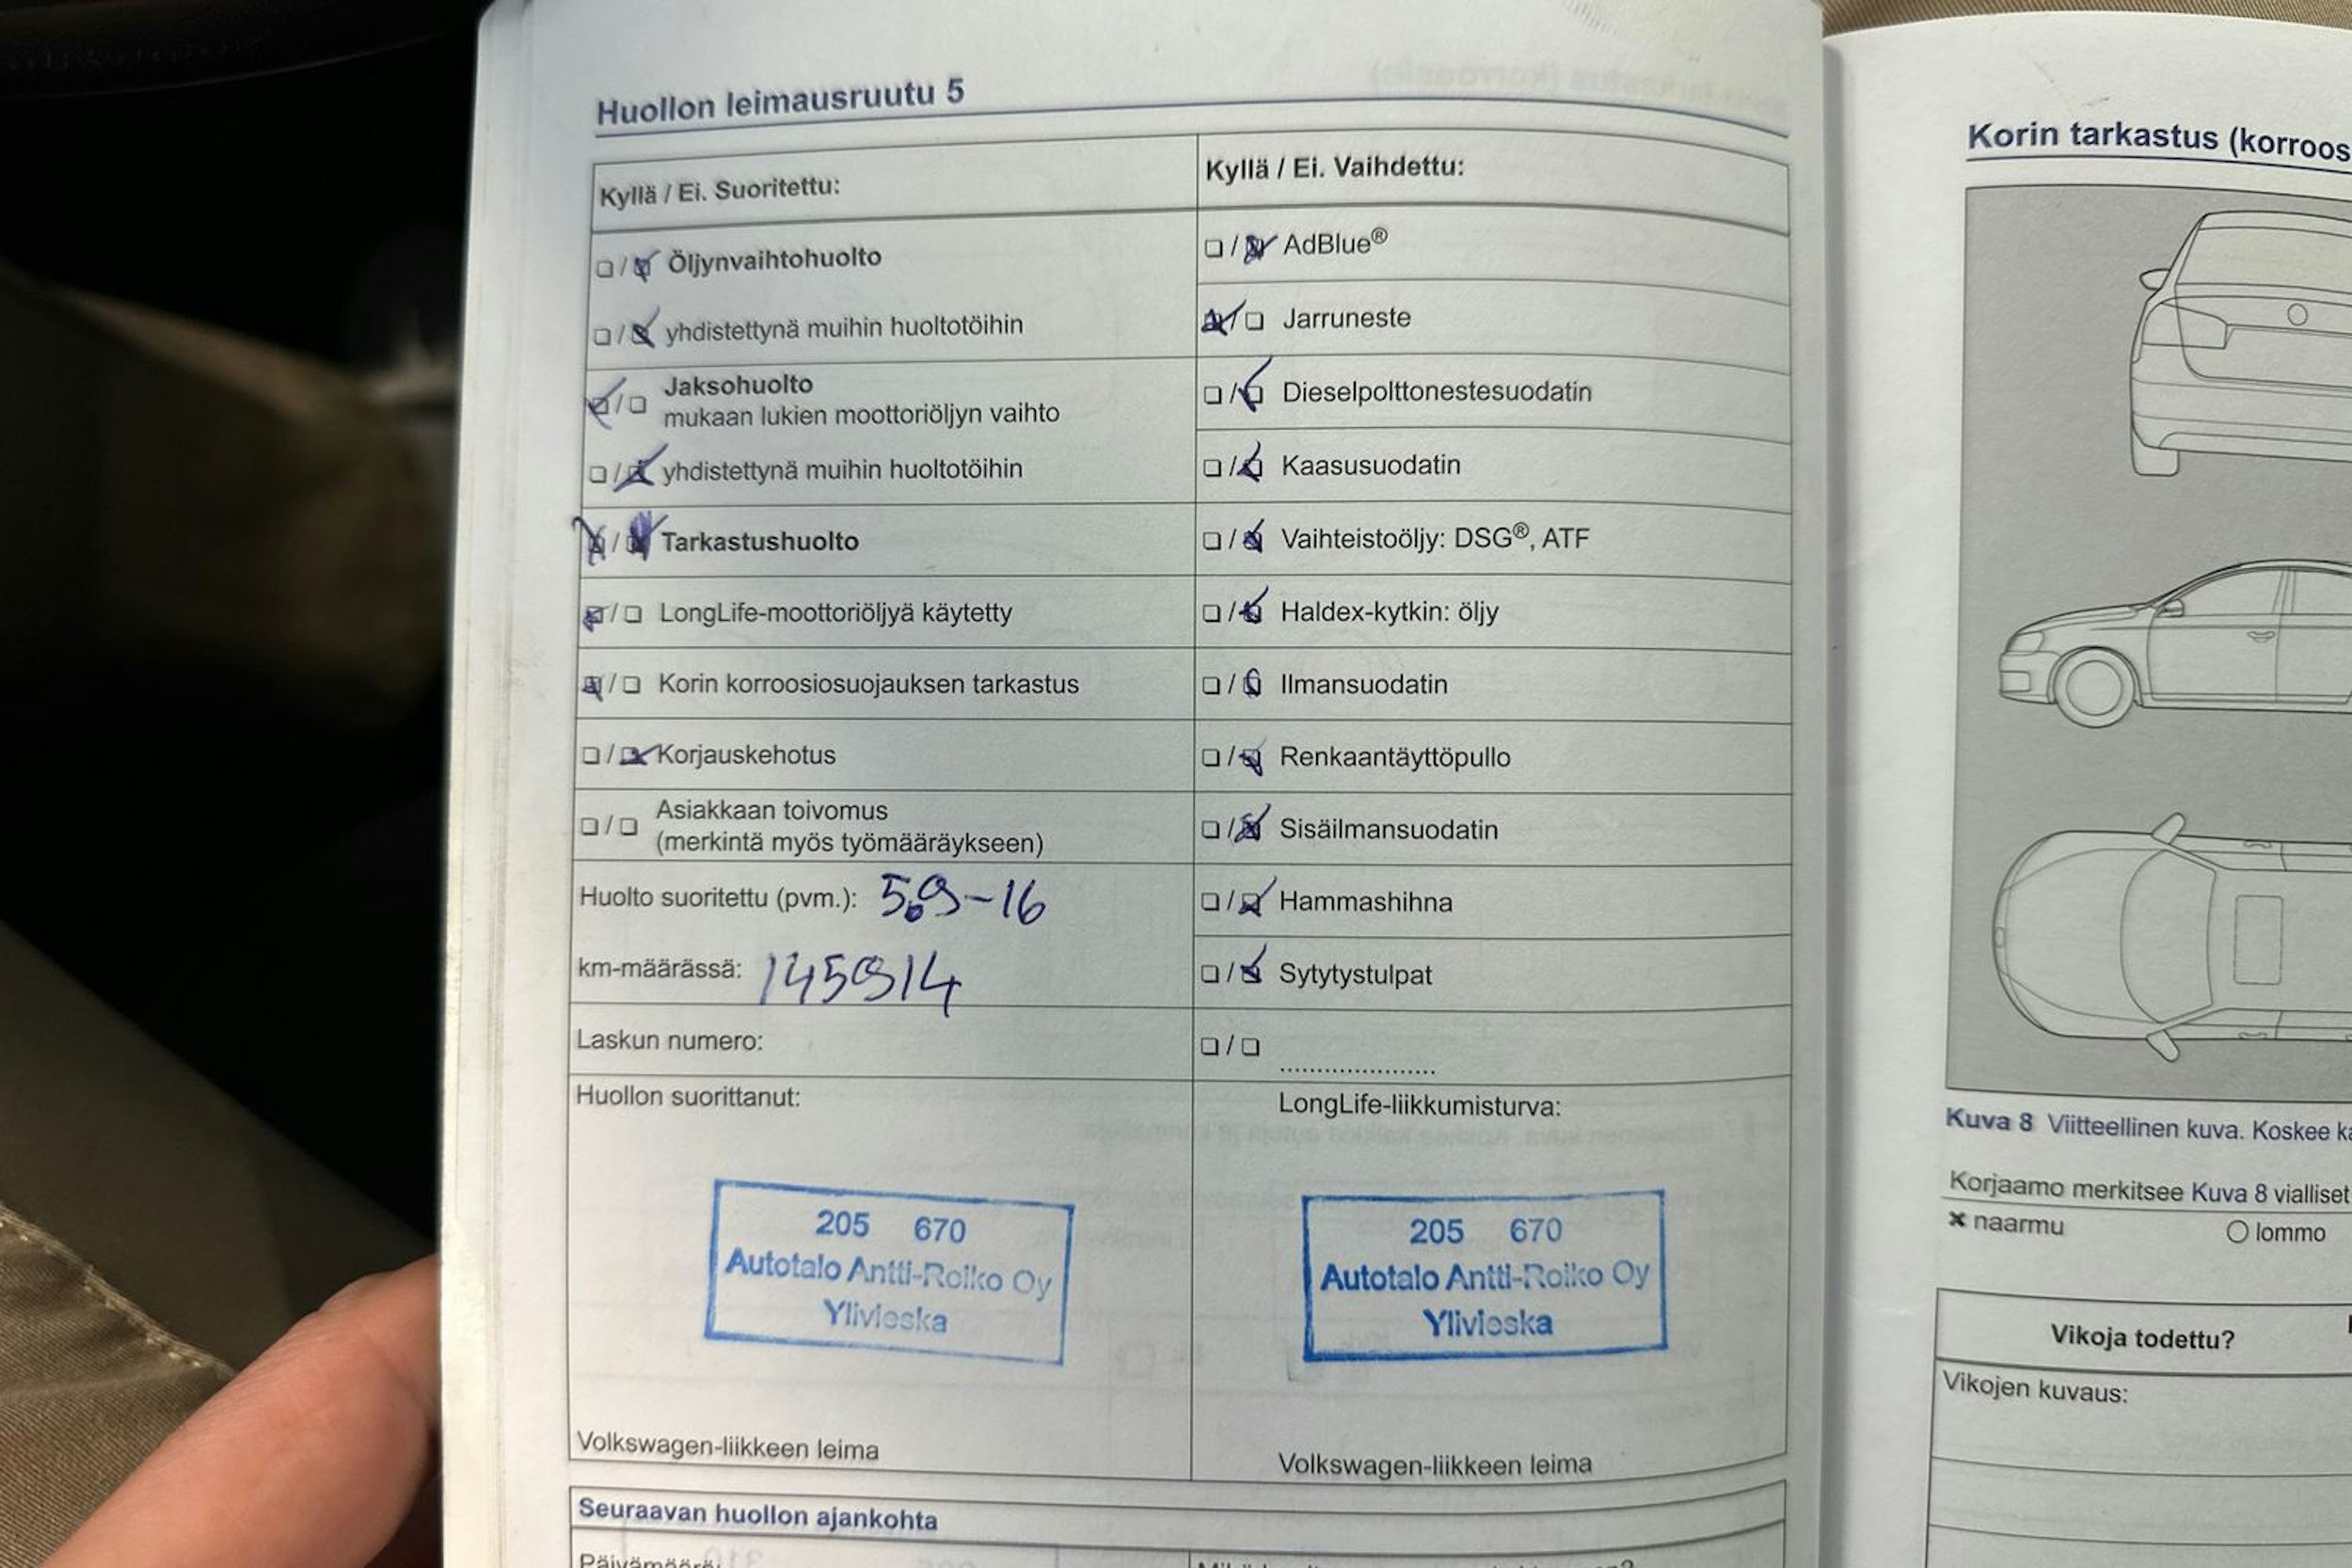 Huollon leimausruutu 5
Kyllä / Ei. Suoritettu:
☐/☑ Öljynvaihtohuolto
☐/☑ yhdistettynä muihin huoltotöihin
☑/☐ Jaksohuolto
mukaan lukien moottoriöljyn vaihto
☐/☑ yhdistettynä muihin huoltotöihin
☑/☑ Tarkastushuolto
☑/☐ LongLife-moottoriöljyä käytetty
☑/☐ Korin korroosiosuojauksen tarkastus
☐/☑ Korjauskehotus
☐/☐ Asiakkaan toivomus
(merkintä myös työmääräykseen)
Huolto suoritettu (pvm.): 5.9-16
km-määrässä: 145914
Laskun numero:
Huollon suorittanut:
205 670
Autotalo Antti-Roiko Oy
Ylivieska
Volkswagen-liikkeen leima
Kyllä / Ei. Vaihdettu:
☐/☑ AdBlue®
☑/☐ Jarruneste
☐/☑ Dieselpolttonestesuodatin
☐/☑ Kaasusuodatin
☐/☑ Vaihteistoöljy: DSG®, ATF
☐/☑ Haldex-kytkin: öljy
☐/☑ Ilmansuodatin
☐/☑ Renkaantäyttöpullo
☐/☑ Sisäilmansuodatin
☐/☑ Hammashihna
☐/☑ Sytytystulpat
☐/☐ ......................
LongLife-liikkumisturva:
205 670
Autotalo Antti-Roiko Oy
Ylivieska
Volkswagen-liikkeen leima
Seuraavan huollon ajankohta
Korin tarkastus (korroos
Kuva 8 Viitteellinen kuva. Koskee
Korjaamo merkitsee Kuva 8 vialliset
× naarmu ○ lommo
Vikoja todettu?
Vikojen kuvaus: